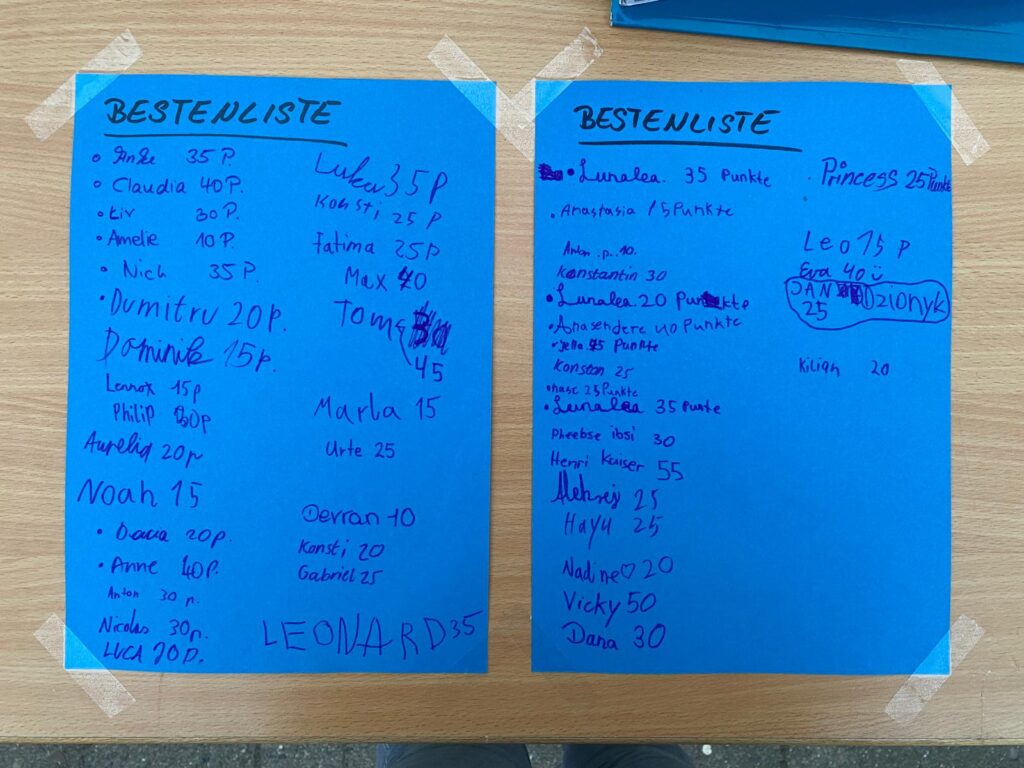 BESTENLISTE
35 P.
Claudia 40 P.
Liv 30 P.
Amelie 10 P.
Nich 35 P.
Dumitru 20 p.
Dominik 15 p.
Lennox 15 p
Philip 30 p
Aurelia 20 p
Noah 15
Dacia 20 p.
Anne 40 P.
Anton 30 p.
Nicolas 30 p.
LUCA 20 P.
Luka 35 P
Konsti 25 P
Fatima 25 p
Max 40
Tom
45
Marla 15
Urte 25
Devran 10
Konsti 20
Gabriel 25
LEONARD 35
BESTENLISTE
Lunalea. 35 Punkte
Anastasia 15 Punkte
Anton .p. 40.
Konstantin 30
Lunalea 20 Punkte
Anasendere 40 Punkte
Punkte
25
hase 25 Punkte
Lunalea 35 Punkte
Pheebse ibsi 30
Henri Kaiser 55
Aleksej 25
Hayu 25
Nadine♡ 20
Vicky 50
Dana 30
Princess 25 Punkte
Leo 15 P
Eva 40 ü
JAN Dzionyk
25
Kilian 20